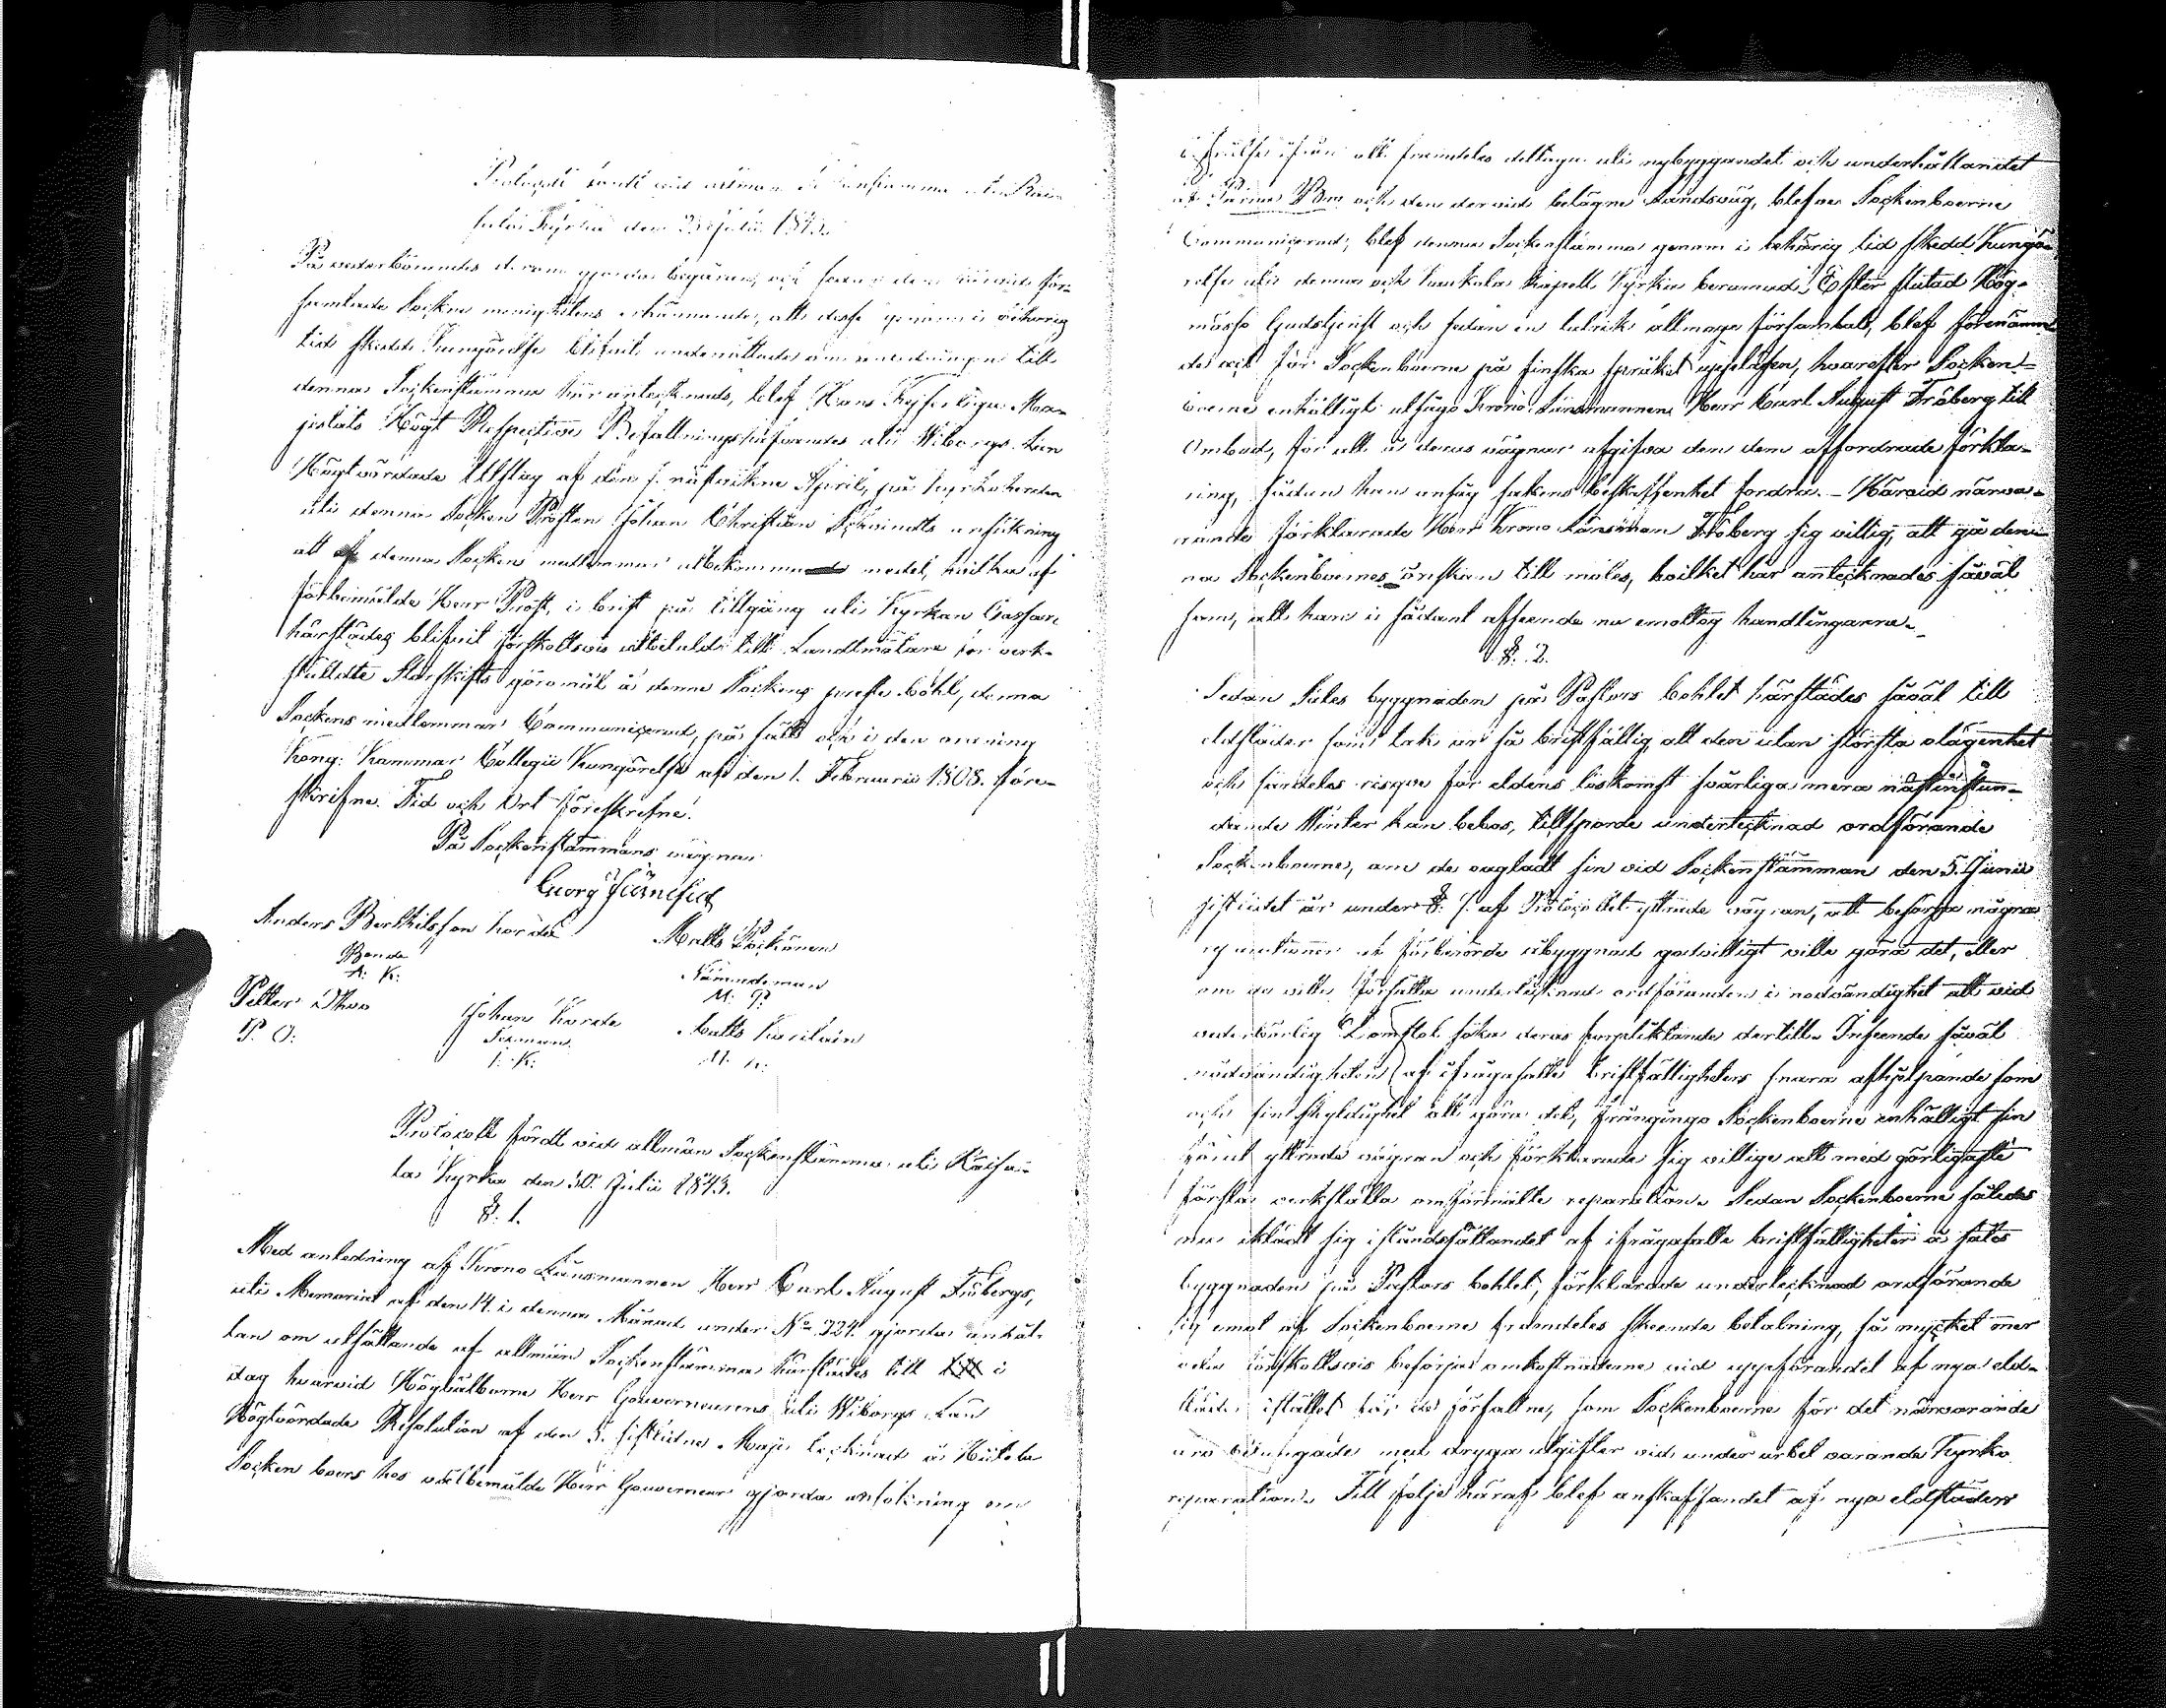 Protocoll fördt vid allmän Sockenstämma uti Kau-
kola Kyrka den 23 Julii 1843.
På vederbörandes derom gjorda begäran, och som den härvid för-
samlade Socken menighetens erkännande, att desse genom i behörig
tid skedd Kungörelse blifvit underrättade om anledningen till
denna Sockenstämma här antecknads, blef Hans Kejserliga Ma-
jestäts Högt Respective Befallningshafvandes uti Wiborgs Län
Högtvördade Utslag af den sistvikne April, på Kyrkoherden
uti denna Socken Prosten Johan Christian Schwindts ansökning
att af denna Socken medlemmar utbekomma medel, hvilka af
förbemälde Herr Prost, i brist på tillgång uti Kyrkan Cassan
härstädes blifvit förskottsvis utbetalde till Landtmätare för verk-
ställdte Storskifts göromål å denne Sockens preste bohl, denna
Sockens medlemmar Communicerad, på sätt och i den ordning
Kong: Kammar Collegii Kungörelse af den 1. Februarii 1808. före-
skrifne. Tid och Ort föreskrefne.
På Sockenstämmans vägnar
Georg
Anders Berthilsson Korde
Matts
Bonde
A: K:
Nämndeman
M: P:
Petter Ihwo
P. O:
Johan Korde
J: K:
Matts
M. K:
Protocoll fördt vid allmän Sockenstämma uti Räisä-
lä Kyrka den 30. Julii 1843.
§: 1.
Med anledning af Krono Länsmannen Herr Carl August Fröbergs,
uti Memorial af den 14. i denna Månad under No 324. gjorda anhål-
lan om utsättande af allmän Sockenstämma härstädes till i
dag hvarvid Högvälborne Herr Gouverneurens uti Wiborgs Län
Högtvördade Resolution af den 5. sistledne Maji tecknad å Hiitola
Socken boers hos välbemälde Herr Gouverneur gjorda ansökning om
befrielse ifrån att framdeles deltaga uti nybyggandet och underhållandet
af Bro och den dervid belägne landsväg, blefve Sockenboerne
Communicerad; blef denna Sockenstämma genom i behörig tid skedd Kungö-
relse uti denna och Kaukola Kapell Kyrkor beramad. Efter slutad Hög-
mässo Gudstjenst och sedan en talrik allmoge församlad, blef förenämn-
de act för Sockenboerne på finska språket uppläsen, hvarefter Socken-
boerne enhälligt utsågo Krono Länsmannen Herr Carl August Fröberg till
Ombud, för att å deras vägnar afgifva den dem affordrade förkla-
ring, sådan han ansåg sakens beskaffenhet fordra. – Härvid närva-
rande förklarade Herr Krono Länsman Fröberg sig villig, att gå den-
na Sockenboernes önskan till mötes, hvilket här antecknades såväl
som, att han i sådant afseende nu emottog handlingarne.
§. 2.
Sedan Sales byggnaden på Pastors bohlet härstädes såväl till
eldstäder som tak är så bristfällig att den utan största olägenhet
och särdeles risque för eldens löskomst svårliga mera nästinstun-
dande Winter kan bebos, tillsporde undertecknad ordförande
Sockenboerne, om de oagtadt sin vid Sockenstämman den 5. Junii
sistledet år under §: 1. af Protocollet yttrade vägran, att besörja några
reparationer å förberörde åbyggnad godvilligt ville göra det, eller
om de ville försätta undertecknad ordföranden i nödvändighet att vid
vederbörlig Domstol söka deras förpliktande dertill. Inseende såväl
nödvändigheten af ifrågasatte bristfälligheters snara afhjelpande som
och sin skyldighet att göra det, frångingo Sockenboerne enhälligt sin
yttrade vägran och förklarade sig villige att med görligaste
första verkställa omförmälte reparation. Sedan Sockenboerne således
nu iklädt sig iståndsättandet af ifrågasatte bristfälligheter å sales
byggnaden på Pastors bohlet, förklarade undertecknad ordförande
sig emot af Sockenboerne framdeles skeende betalning, så mycket mer
vela förskottsvis besörja omkostnaderne vid uppförandet af nya eld-
städer istället för de förfallne, som Sockenboerne för det närvarande
äro betungade med dryga utgifter vid under arbet varande Kyrko
reparation. Till följe häraf blef anskaffandet af nya eldstäders